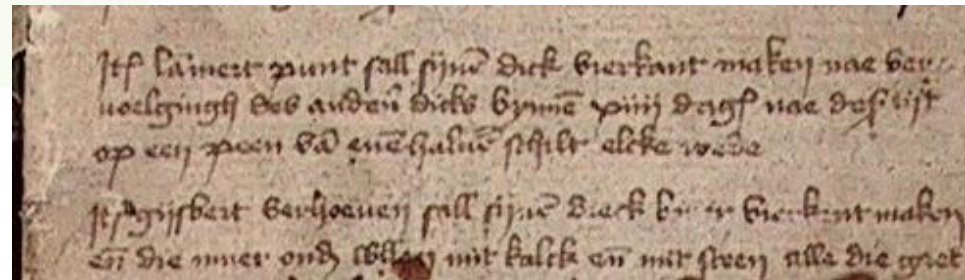 Itē lāmert punt sall sijnē dick vierkant maken nae ver
voelgingh des anderē dicks bynnē xiiij dagē nae desē tijt
op een peen vā enē haluē schilt elcke wede
Itē gijsbert verhoeven sall sijnē dieck vierkant maken
eñ die muer mit kalck eñ mit steen alle die gret